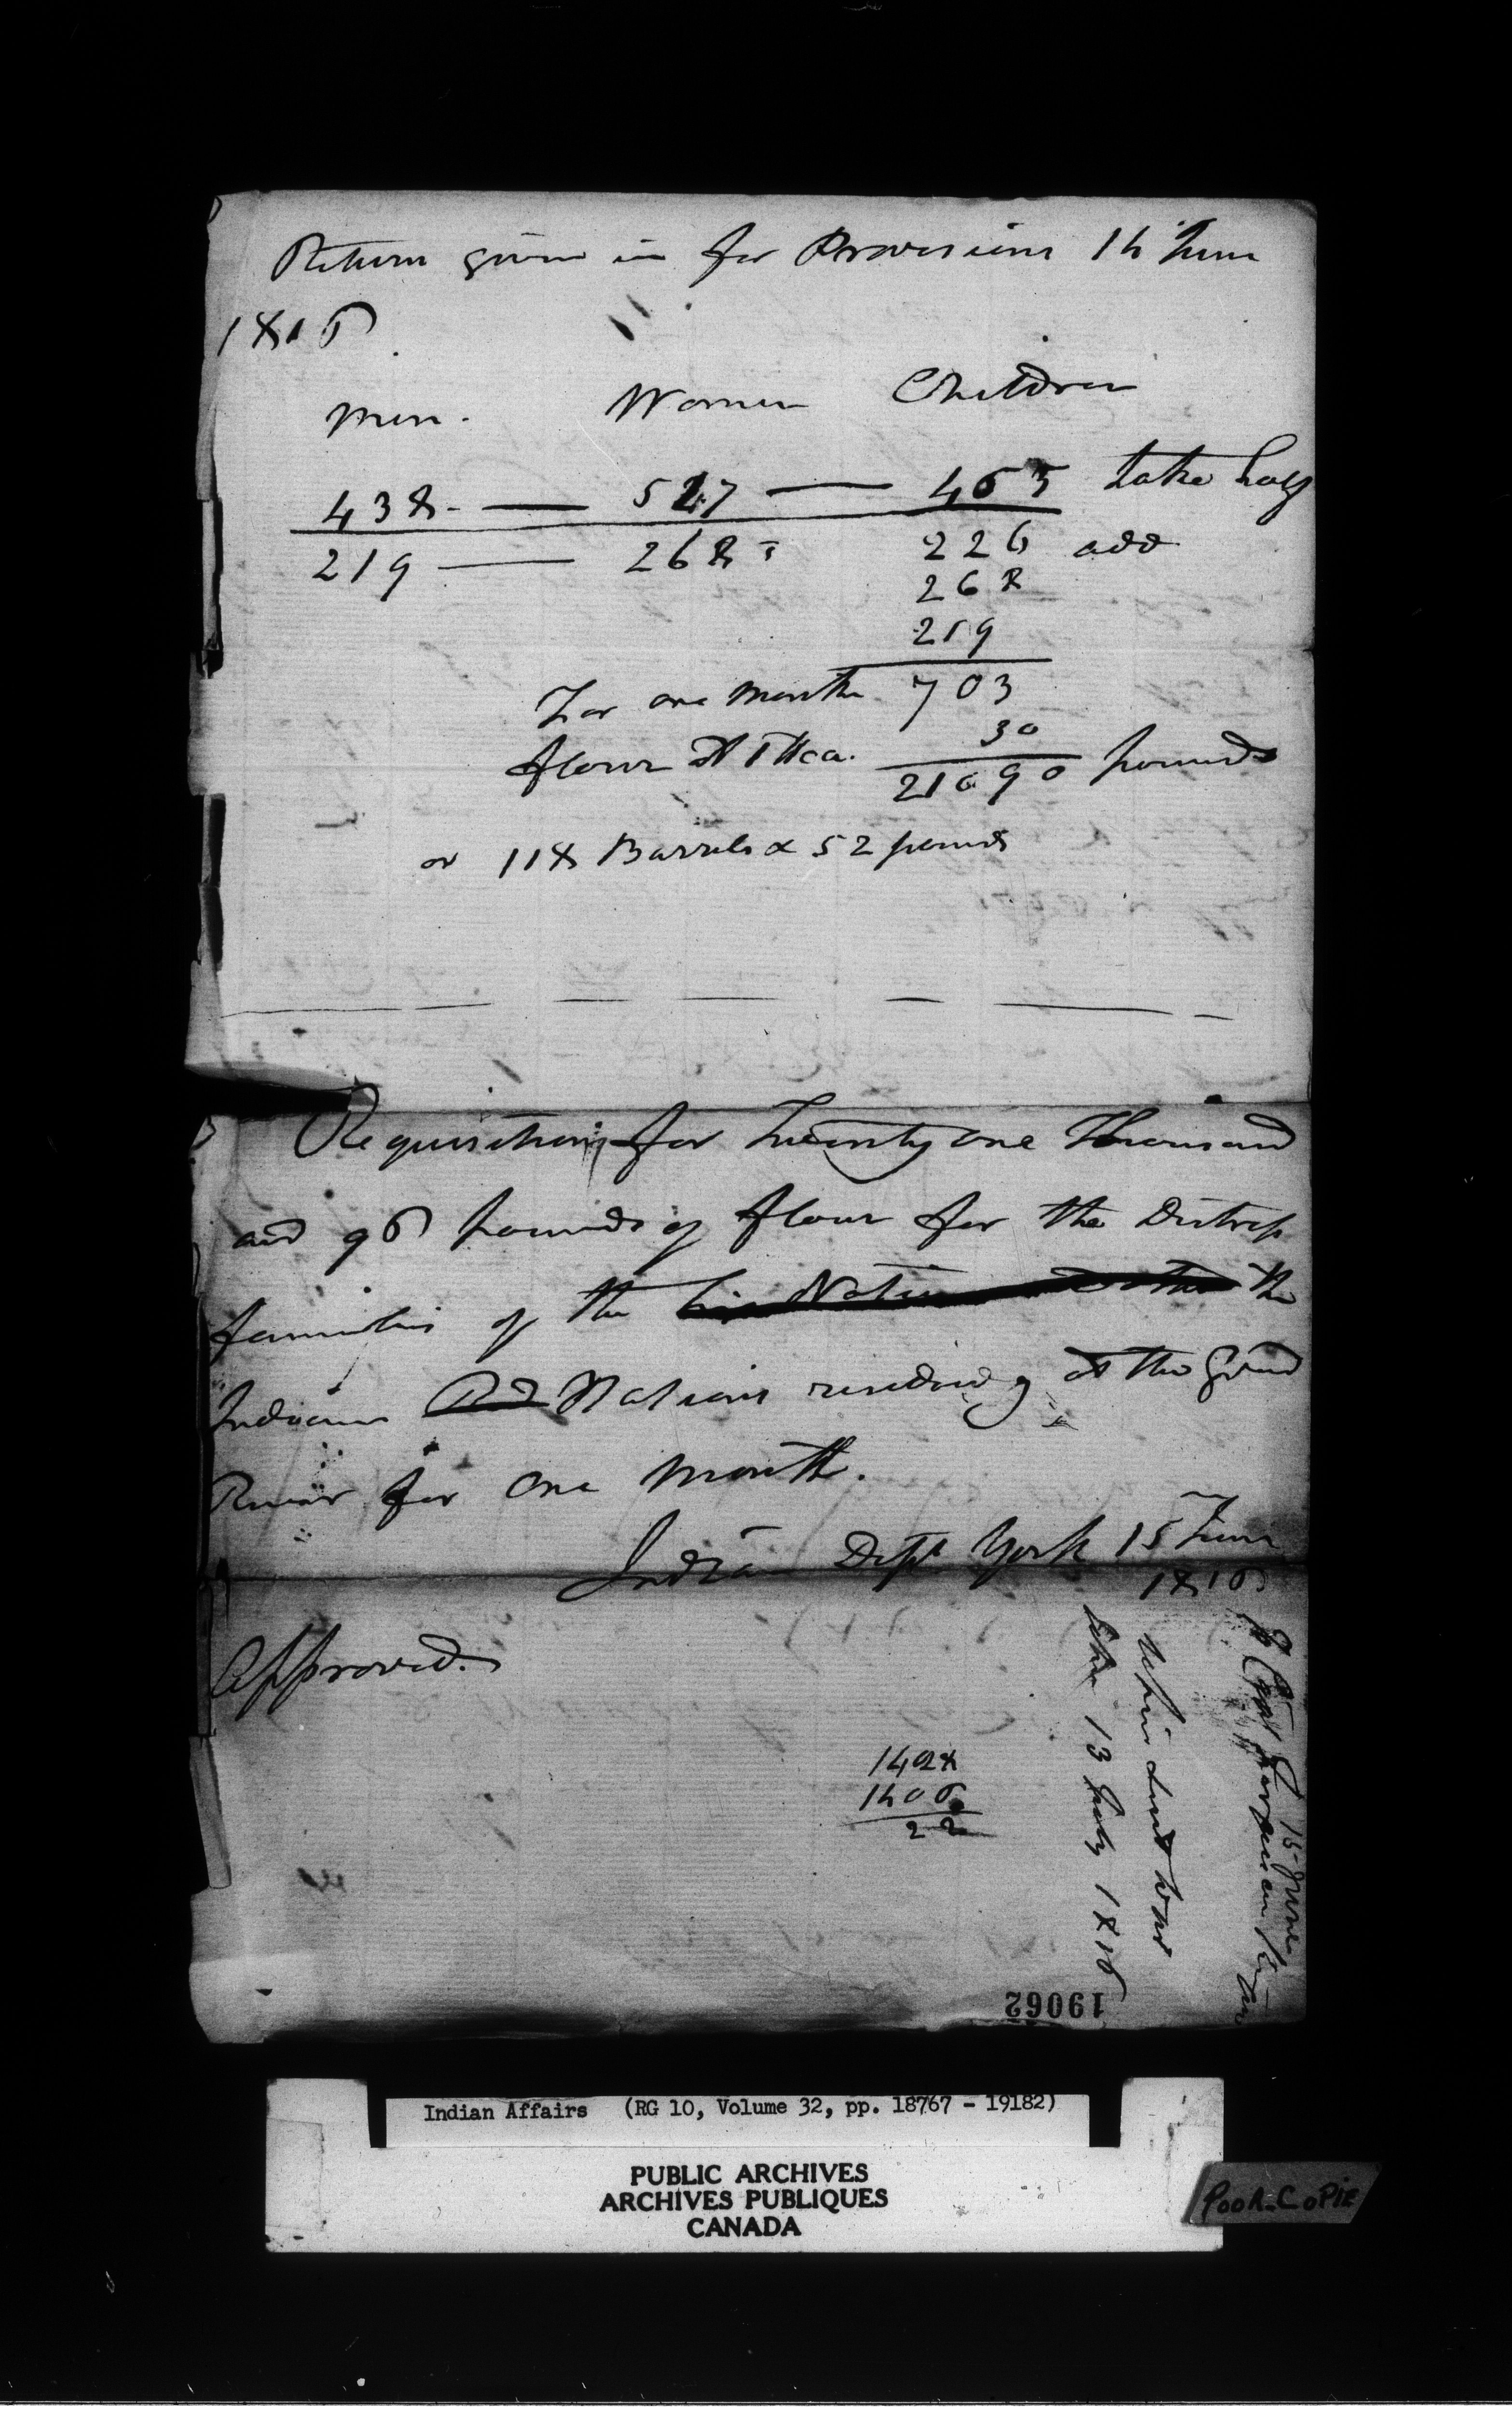 Return given in for Provisions 14 June
1816
Men. Women Children
438 — 527 — 453 take half
219 — 268 226 add
268
219
For one month 703
30
flour at 1 lb ea. 21090 pounds
or 118 Barrels & 52 pounds
Requisition for Twenty one Thousand
and 96 pounds of flour for the Distress
families of the the
Indian Nations residing at the Grand
River for one Month.
Indian Dept York 15 June
1816
Approved.
1428
1406
22
15 June
To Capt
which
13 July 1816
19062
Indian Affairs (RG 10, Volume 32, pp. 18767 - 19182)
PUBLIC ARCHIVES
ARCHIVES PUBLIQUES
CANADA
POOR COPIE